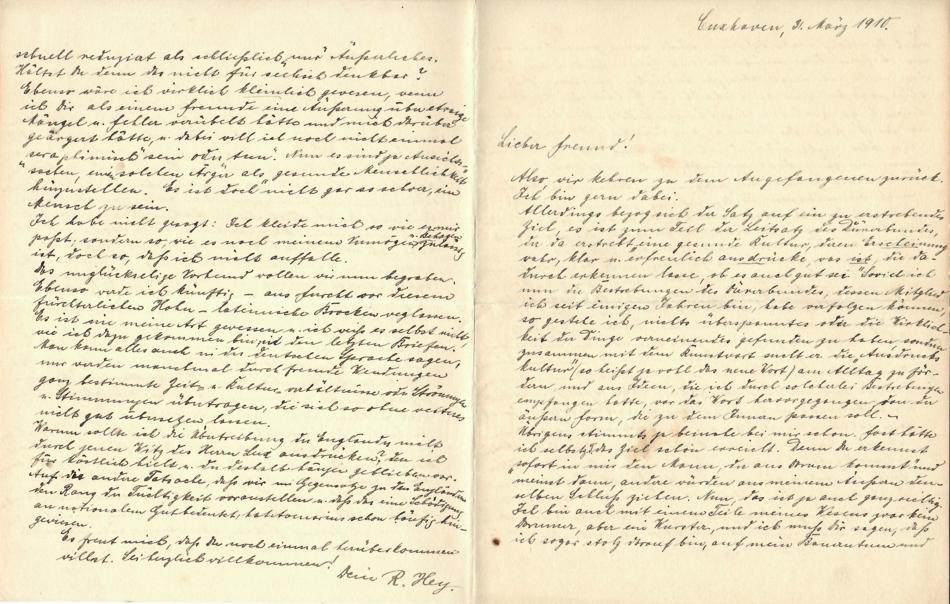 Cuxhaven, 31. März 1910.
Lieber Freund!
Also wir kehren zu dem Angefangenen zurück.
Ich bin gern dabei.
Allerdings bezog sich der Satz auf ein zu erstrebendes
Ziel, es ist zum Teil der Leitsatz des Dürerbundes,
der da erstrebt eine gesunde Kultur, deren Erscheinung
wahr, klar u. erfreulich ausdrücke, was ist, die da-
durch erkennen lasse, ob es auch gut sei. Soviel ich
nun die Bestrebungen des Dürerbundes, dessen Mitglied
ich seit einigen Jahren bin, habe verfolgen können,
so gestehe ich, nichts überspanntes oder die Wirklich-
keit der Dinge verneinendes gefunden zu haben, sondern
zusammen mit dem Kunstwart sucht er die „Ausdrucks-
kultur" (so heißt ja wohl das neue Wort) am Alltag zu för-
dern, und aus Ideen, die ich durch solcherlei Bestrebungen
empfangen hatte, war das Wort hervorgegangen von der
äußern Form, die zu dem Innern passen soll. –
Übrigens stimmts ja beinahe bei mir schon. Fast hätte
ich selbst das Ziel schon erreicht. Denn du erkennst
„sofort in mir den Mann, der aus Worum kommt und
meinst dann, andere würden aus meinem Äußern den-
selben Schluß ziehen. Nun, das ist ja auch ganz richtig.
Ich bin auch mit einem Teile meines Wesens zwar kein
Wormer, aber ein Wurster, und ich muß dir sagen, daß
ich sogar stolz darauf bin, auf mein Bauerntum und
schnell reduziert als schließlich „nur Äußerliches.
Hältst du denn das nicht für seelisch denkbar?
Ebenso wäre ich wirklich kleinlich gewesen, wenn
ich dir als einem Freunde eine Äußerung über etwaige
Mängel u. Fehler verübelt hätte und mich darüber
geärgert hätte, u. dabei will ich noch nicht einmal
„seraphimisch" sein oder tun". Nun es sind ja Ansichts-
sachen, einen solchen Ärger als „gesunde Menschlichkeit"
hinzustellen. Es ist doch nicht gar so schwer, ein
Mensch zu sein.
Ich habe nicht gesagt: Ich kleide mich so wie es mir
paßt, sondern so, wie es nach meinem Vermögen u. Behagen zulässig
ist, doch so, daß ich nicht auffalle.
Das unglückselige Vorhemd wollen wir nun begraben.
Ebenso werde ich künftig – aus Furcht vor diesem
fürchterlichen Hohn – lateinische Brocken weglassen.
Es ist nie meine Art gewesen u. ich weiß es selbst nicht,
wie ich dazu gekommen bin, in den letzten Briefen.
Man kann alles auch in der deutschen Sprache sagen,
nur werden manchmal durch fremde Wendungen
ganz bestimmte Zeit- u. Kulturverhältnisse oder Strömungen
u. Stimmungen übertragen, die sich so ohne weiteres
nicht gut übersetzen lassen.
Warum sollte ich die Übertreibung der Engländer nicht
durch jenen Witz des Herrn Lux ausdrücken? den ich
für köstlich hielt u. der deshalb hängen geblieben war.
Auf die andere Tatsache, daß wir im Gegensatze zu den Engländern
den Rang der Tüchtigkeit voranstellen u. daß das eine Schädigung
an nationalem Gut bedeutet, hat Avenarius schon häufig hin-
gewiesen.
Es freut mich, daß du noch einmal herüberkommen
willst. Sei herzlich willkommen!
Dein R. Hey.